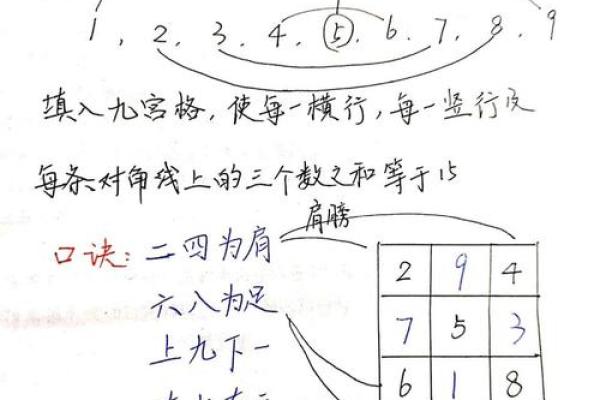 1, 2, 3, 4, ⑤, 6, 7, 8, 9
填入九宫格,使每一横行,每一竖行及
每条对角线上的三个数之和等于15
肩膀
口诀:二四为肩
六八为足
上九下一
2 9 4
7 5 3
6 1 8